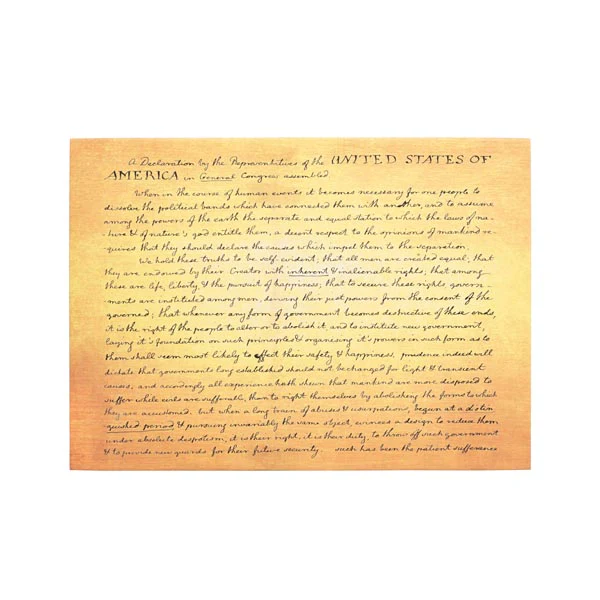 A Declaration by the Representatives of the UNITED STATES OF
AMERICA in General Congress assembled
When in the course of human events it becomes necessary for one people to
dissolve the political bands which have connected them with another, and to assume
among the powers of the earth the separate and equal station to which the laws of na-
-ture & of nature's god entitle them, a decent respect to the opinions of mankind re-
quires that they should declare the causes which impel them to the separation.
We hold these truths to be self-evident; that all men are created equal; that
they are endowed by their Creator with inherent & inalienable rights; that among
these are life, liberty, & the pursuit of happiness; that to secure these rights govern-
ments are instituted among men, deriving their just powers from the consent of the
governed; that whenever any form of government becomes destructive of these ends,
it is the right of the people to alter or to abolish it, and to institute new government,
laying it's foundation on such principles & organising it's powers in such form as to
them shall seem most likely to effect their safety & happiness. prudence indeed will
dictate that governments long established should not be changed for light & transient
causes; and accordingly all experience hath shewn that mankind are more disposed to
suffer while evils are sufferable, than to right themselves by abolishing the forms to which
they are accustomed. but when a long train of abuses & usurpations, begun at a distin
guished period & pursuing invariably the same object, evinces a design to reduce them
under absolute despotism, it is their right, it is their duty, to throw off such government
& to provide new guards for their future security. such has been the patient sufferance